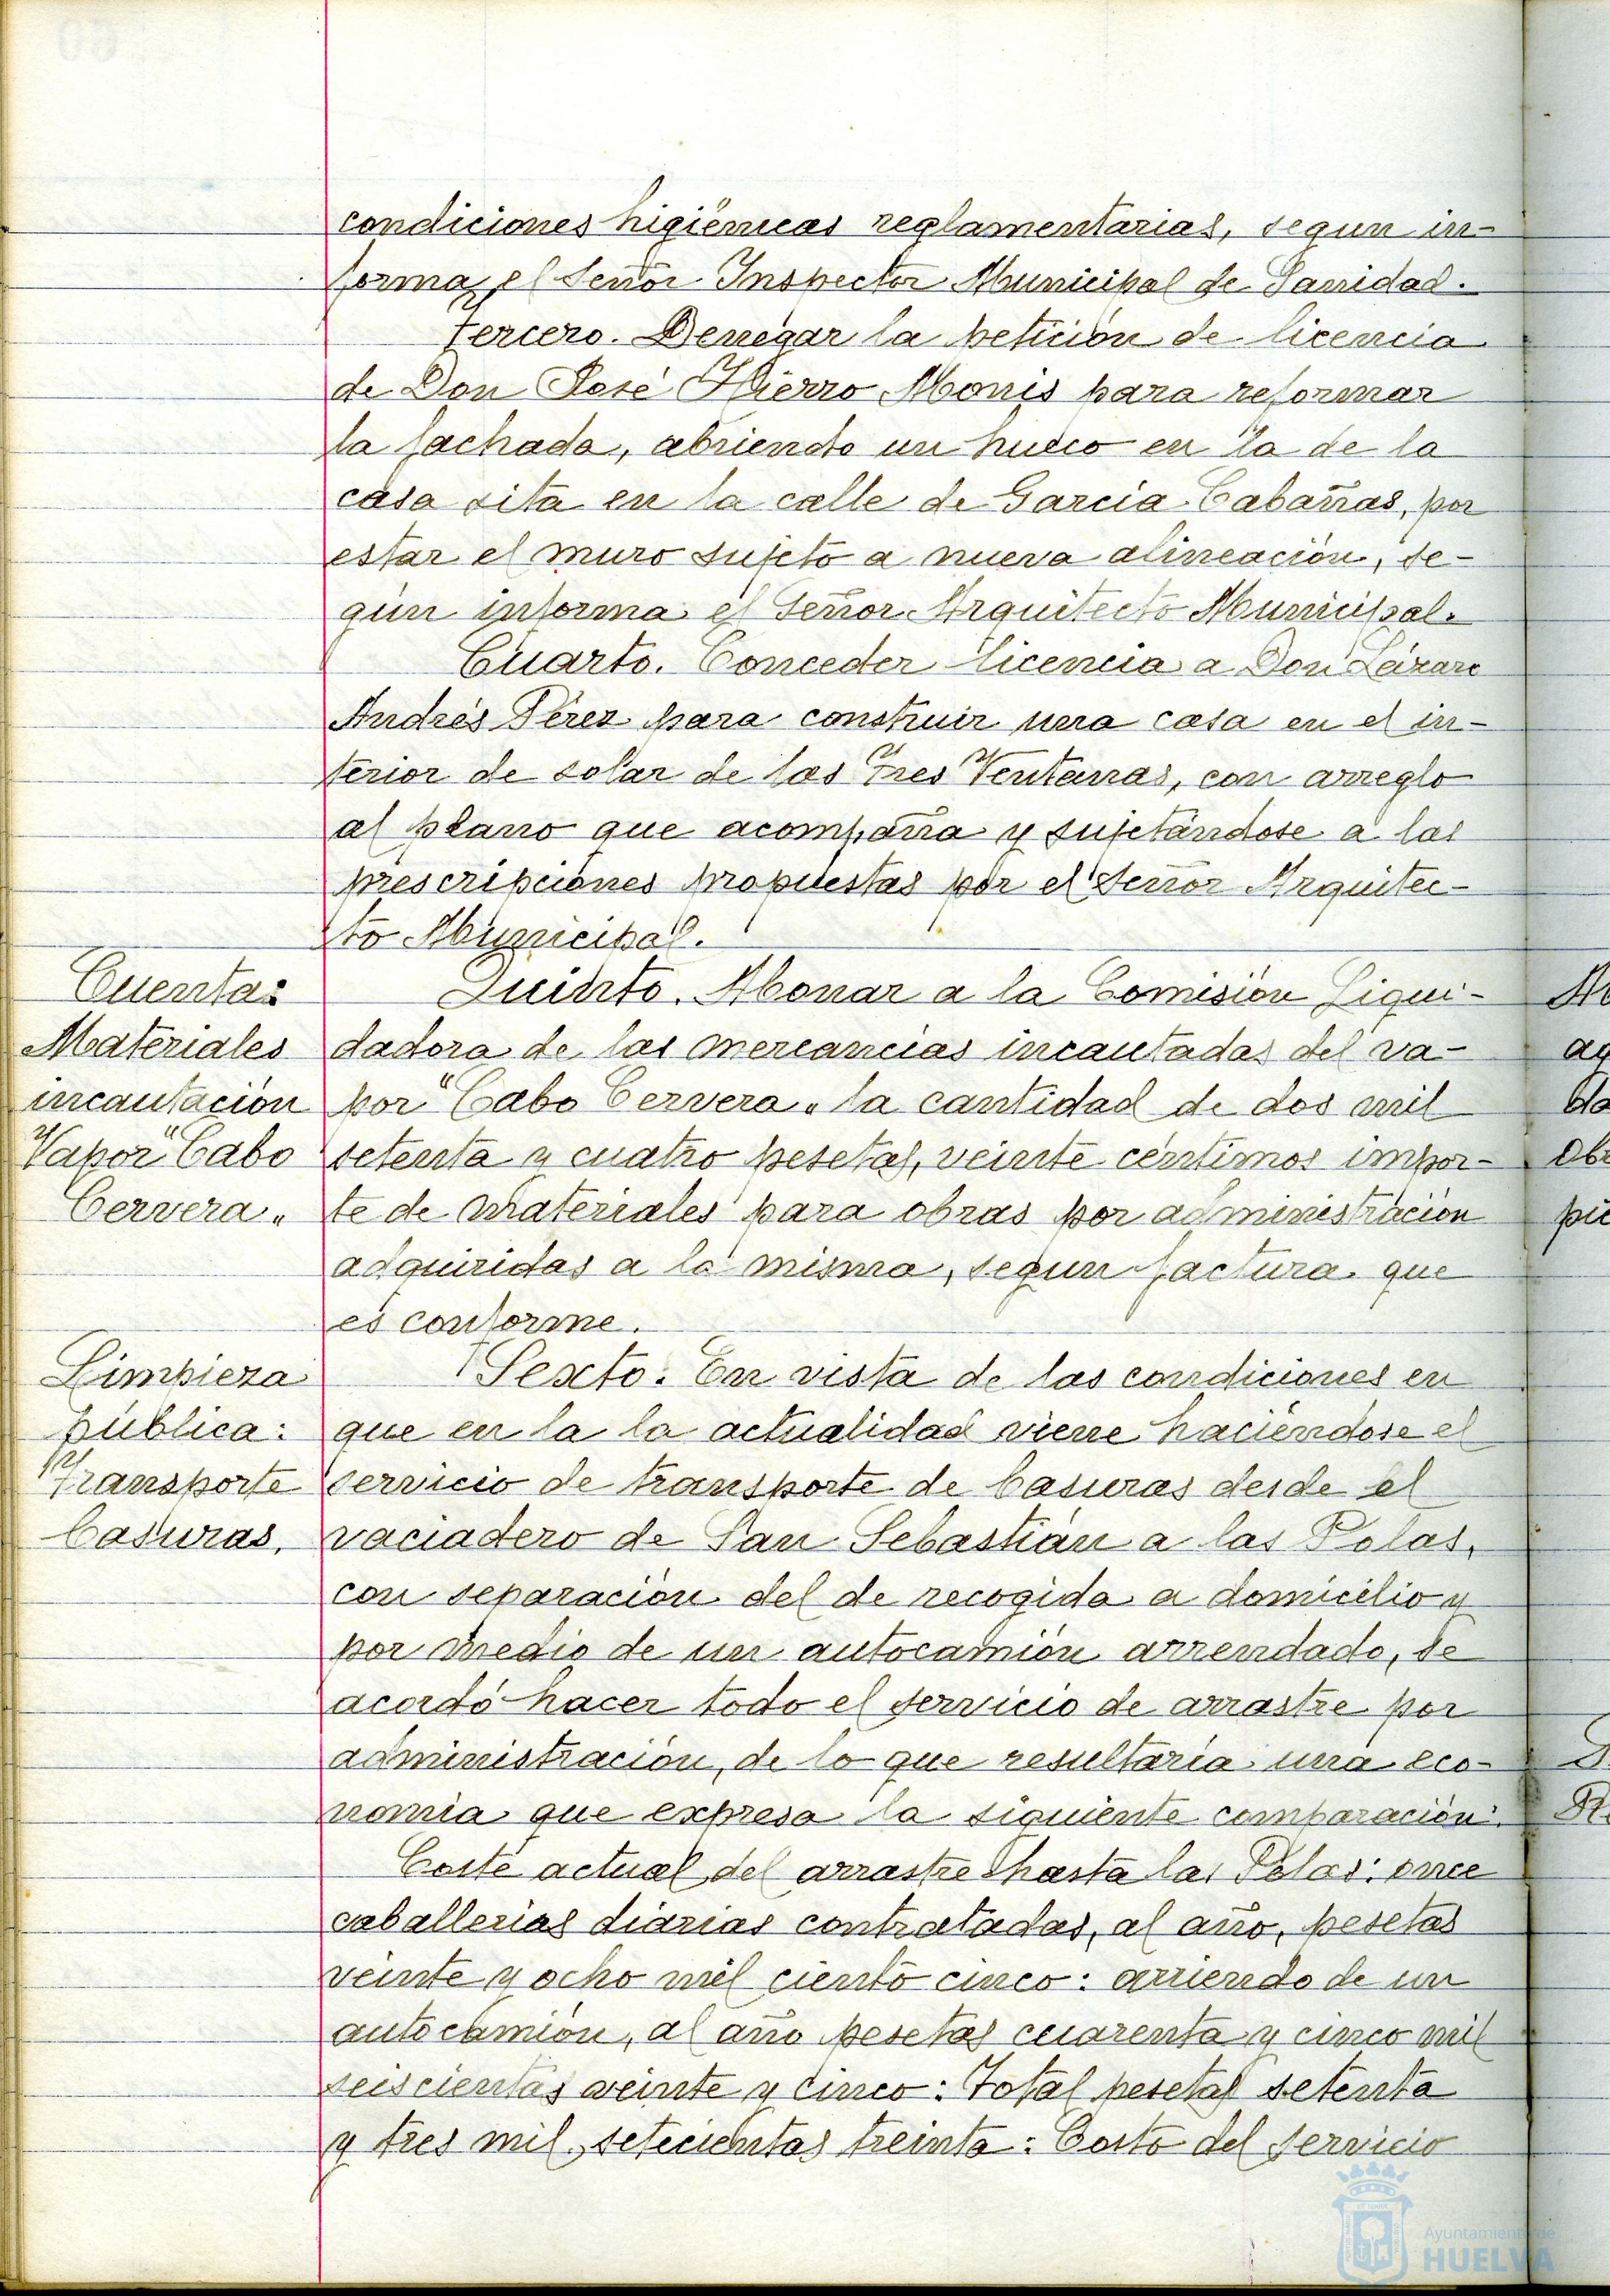 condiciones higiénicas reglamentarias, segun in-
forma el Señor Inspector Municipal de Sanidad.
Tercero. Denegar la petición de licencia
de Don José Hierro Monis para reformar
la fachada, abriendo un hueco en la de la
casa sita en la calle de Garcia Cabañas, por
estar el muro sujeto a nueva alineación, se-
gún informa el Señor Arquitecto Municipal.
Cuarto. Conceder licencia a Don Lázaro
Andrés Pérez para construir una casa en el in-
terior de solar de las Tres Ventanas, con arreglo
al plano que acompaña y sujetándose a las
prescripciones propuestas por el Señor Arquitec-
to Municipal.
Cuentas
Materiales
incautación
Vapor "Cabo
Cervera"
Quinto. Abonar a la Comisión Liqui-
dadora de las mercancias incautadas del va-
por "Cabo Cervera" la cantidad de dos mil
setenta y cuatro pesetas, veinte céntimos impor-
te de materiales para obras por administración
adquiridas a la misma, segun factura que
es conforme.
Limpieza
pública:
Transporte
basuras.
Sexto: En vista de las condiciones en
que en la la actualidad viene haciéndose el
servicio de transporte de basuras desde el
vaciadero de San Sebastián a las Polas,
con separación del de recogida a domicilio y
por medio de un autocamión arrendado, se
acordó hacer todo el servicio de arrastre por
administración, de lo que resultaría una eco-
nomia que expresa la siguiente comparación:
Coste actual del arrastre hasta las Polas: once
caballerias diarias contratadas, al año, pesetas
veinte y ocho mil ciento cinco: arriendo de un
autocamión, al año pesetas cuarenta y cinco mil
seiscientas veinte y cinco: Total pesetas setenta
y tres mil, setecientas treinta: Costo del servicio
Ayuntamiento de
HUELVA